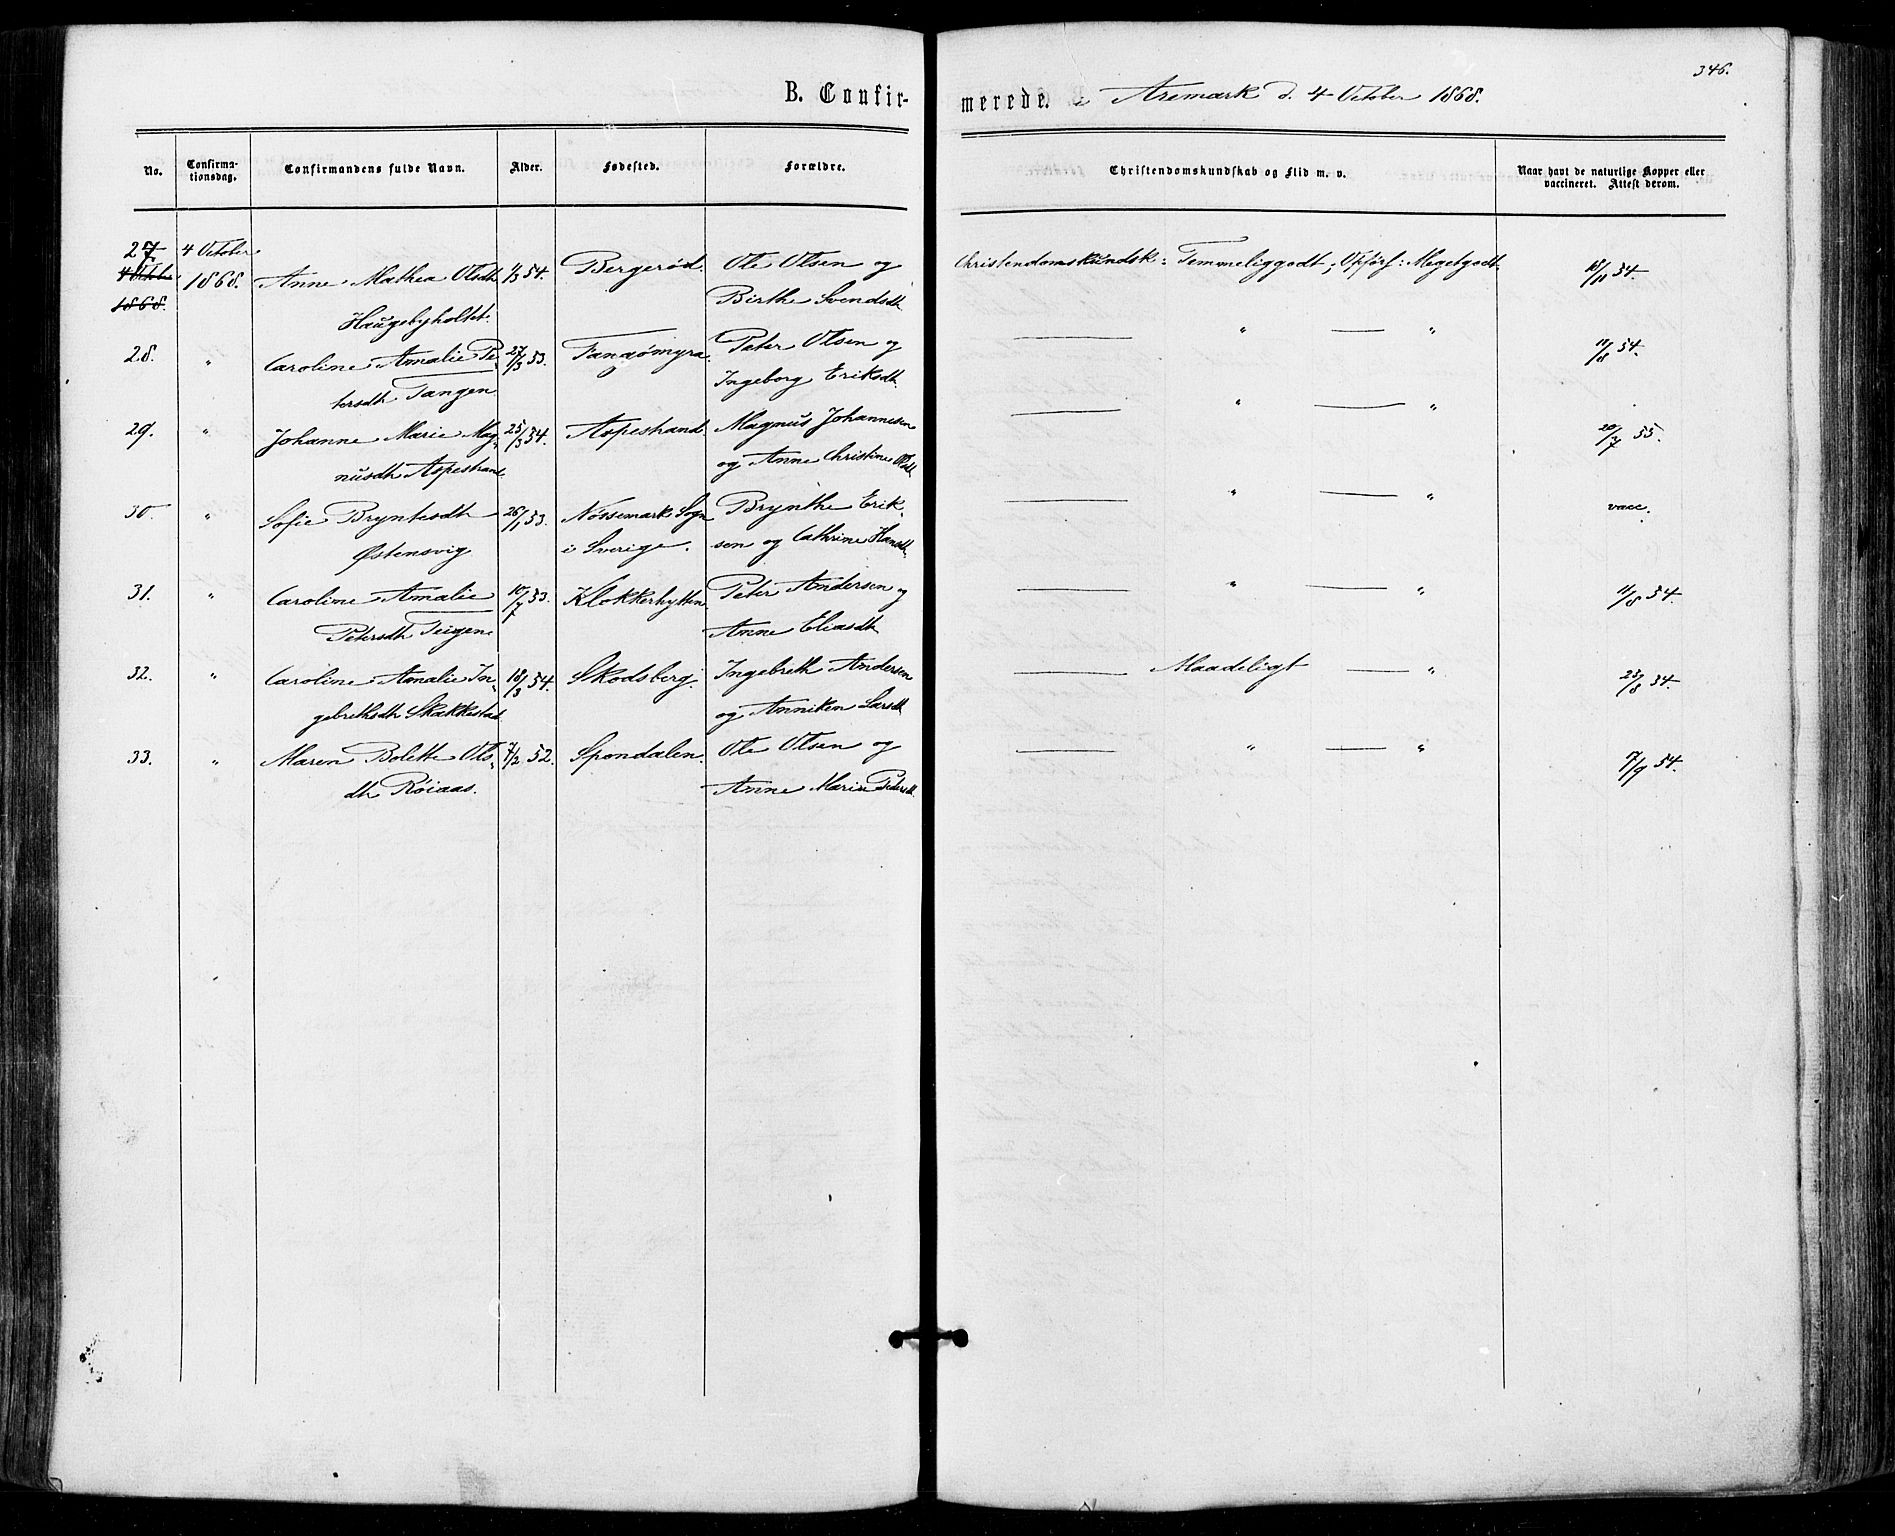 346.
B. Confirmerede. i Aremark d. 4 October 1868.
No.
Confirma-
tionsdag.
Confirmandens fulde Navn.
Alder.
Fødested.
Forældre.
Christendomskundskab og Flid m. v.
Naar havt de naturlige Kopper eller
vaccineret. Attest derom.
27 4 October
4 October 1868. Anne Mathea Olsdtr 1/3 54. Bergerød. Ole Olsen og Christendomskundsk: Temmeliggodt; Opførs: Megetgodt
1868. Haugebyholtet. Birthe Svendsdtr
28. " Caroline Amalie Pe- 27/3 53. Tangømyra. Peter Olsen og " " 11/8 54.
tersdtr Tangen Ingeborg Eriksdtr
29. " Johanne Marie Mag- 25/3 54. Aspestrand. Magnus Johannesen " " 20/7 55.
nusdtr Aspestrand og Anne Christine Olsdtr
30. " Sofie Bryntesdtr 26/1 53. Nössemark Sogn Brynthe Erik- " " vacc.
Østensvig i Sverige. sen og Cathrine Hansdtr
31. " Caroline Amalie 10/7 53. Klokkerhytten Peter Andersen og " " 11/8 54.
Petersdtr Teigen Anne Eliasdtr
32. " Caroline Amalie In- 18/3 54. Skodsberg. Ingebreth Andersen Maadeligt " 23/8 54.
gebrethsdtr Skakkestad og Anniken Larsdtr
33. " Maren Bolette Ols- 7/2 52. Spondalen. Ole Olsen og " " 7/9 54.
dtr Røiaas. Anne Marie Pedersdtr